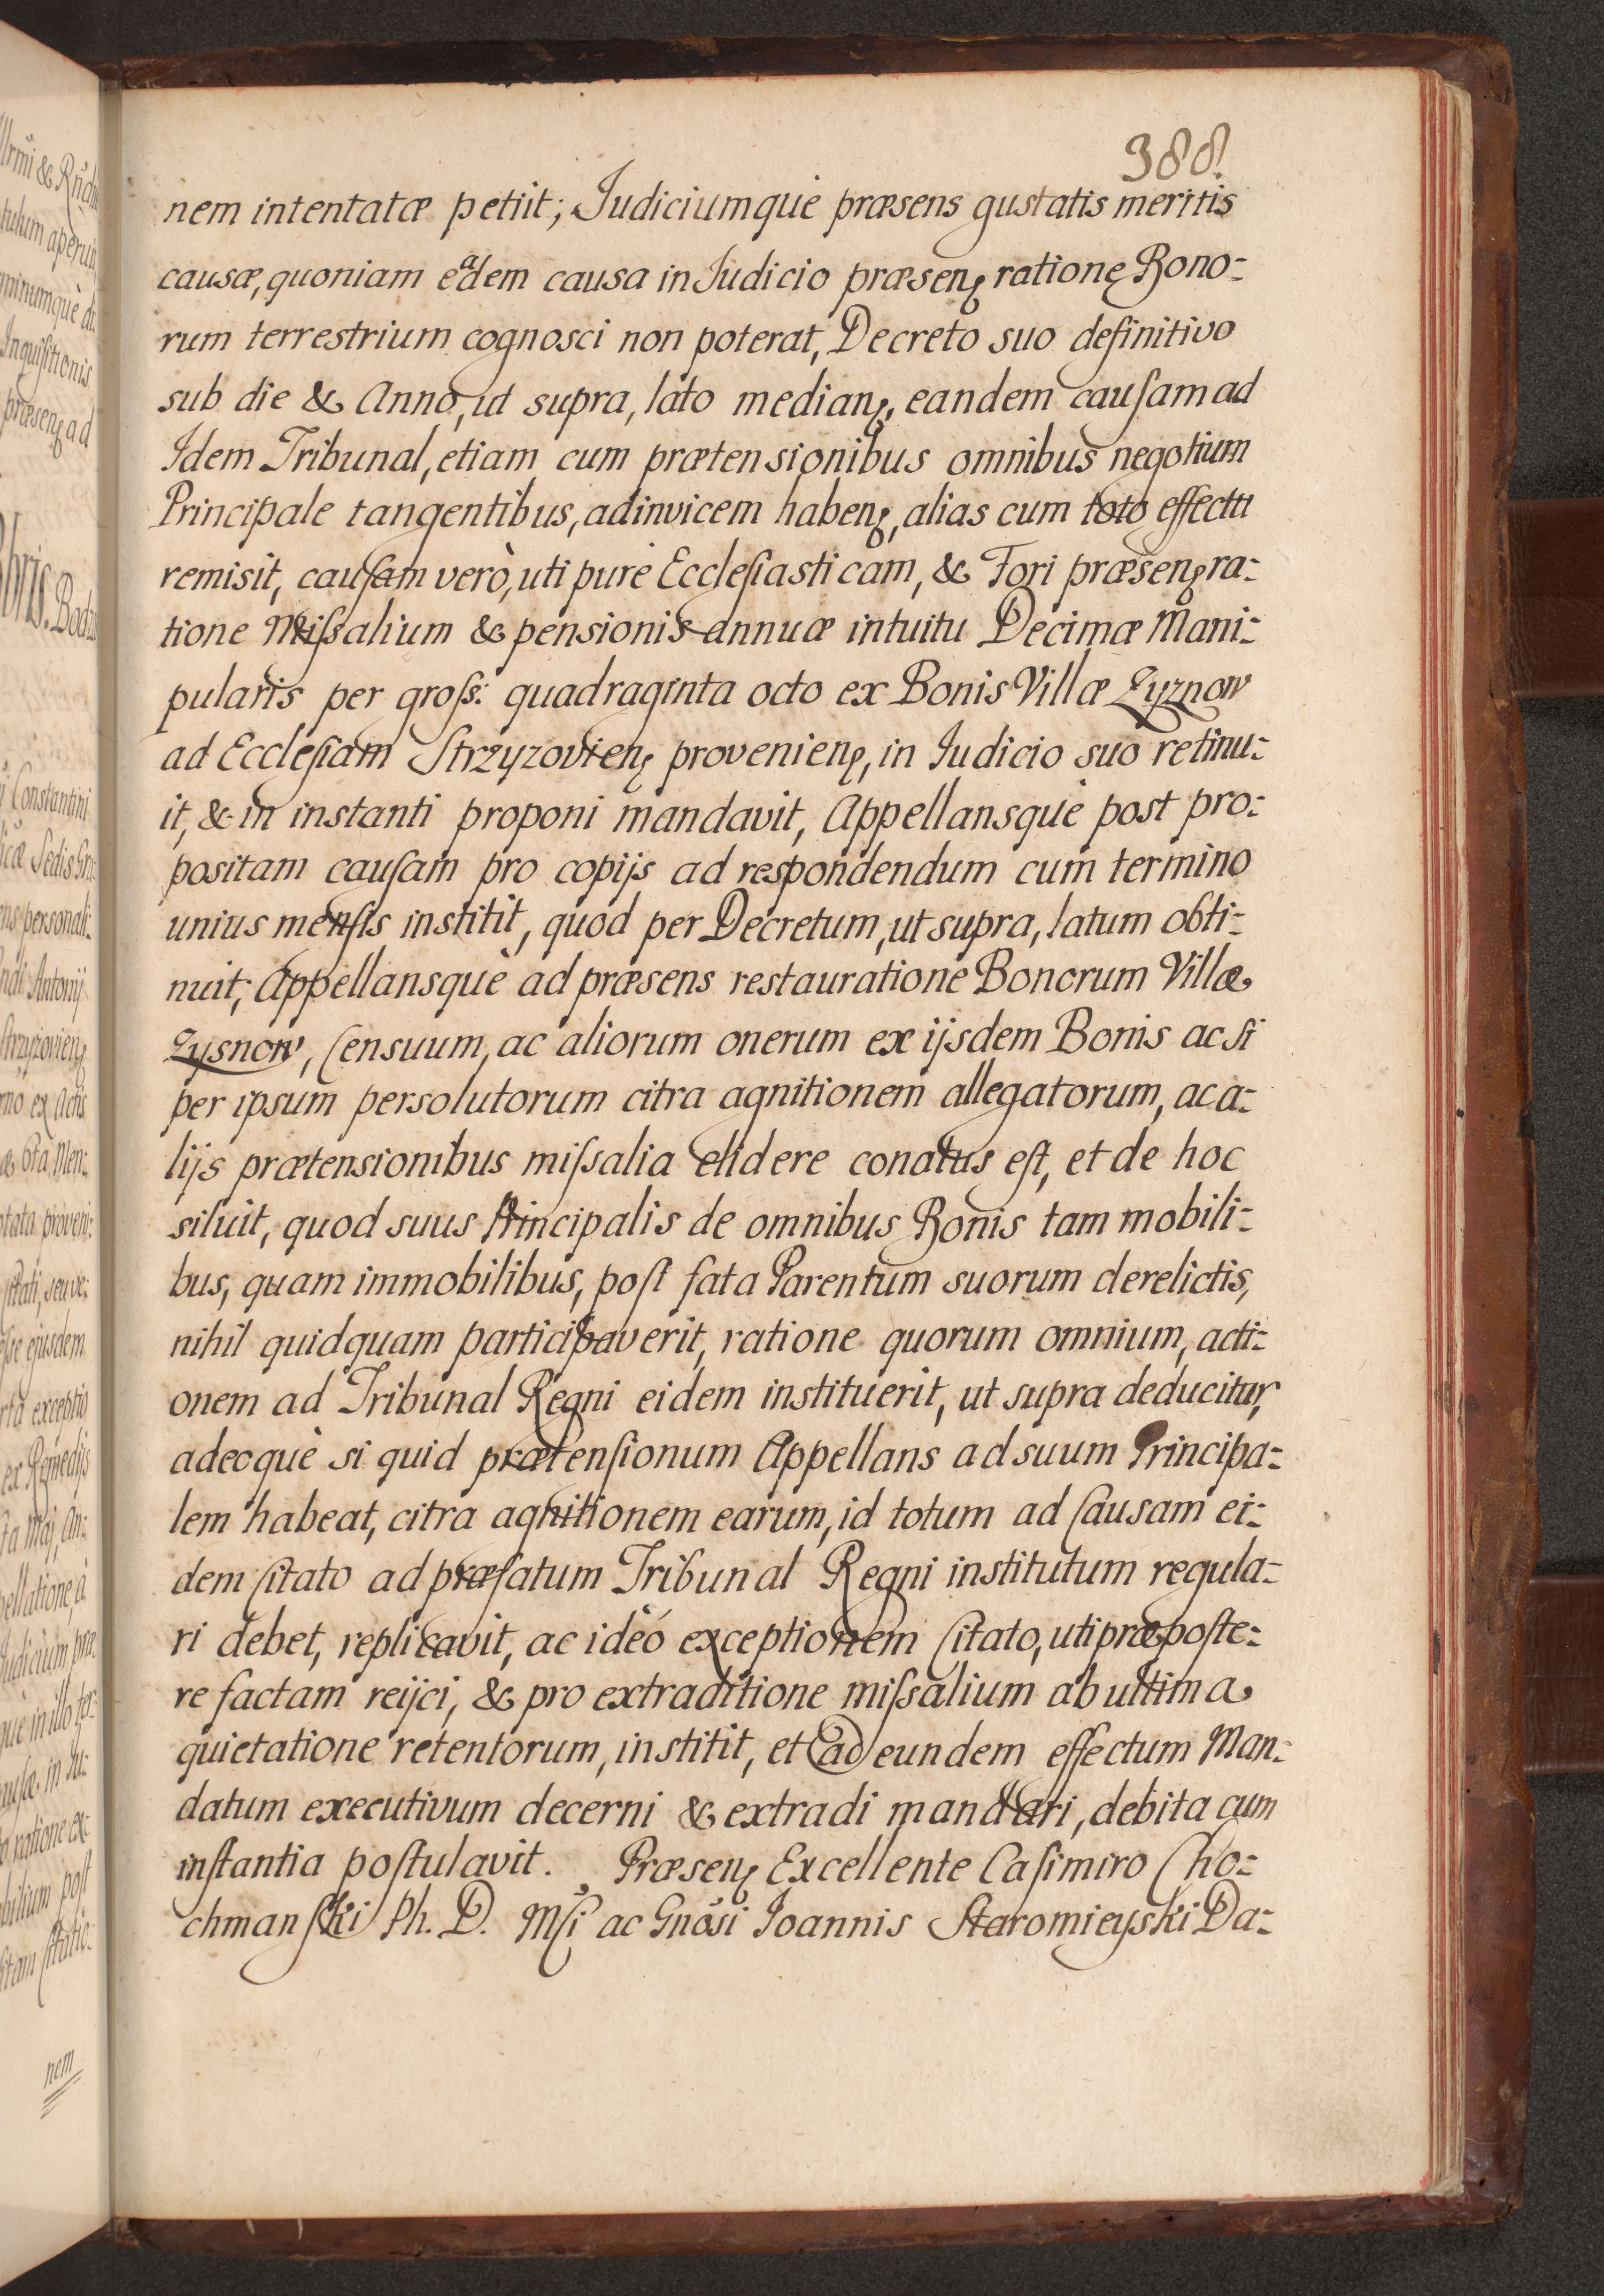 388.
nem intentatæ petiit; Judiciumque præsens gustatis meritis
causæ, quoniam eadem causa in Judicio præsenꝫ ratione Bono-
rum terrestrium cognosci non poterat, Decreto suo definitivo
sub die & Anno, ut supra, lato medianꝫ, eandem causam ad
Idem Tribunal, etiam cum prætensionibus omnibus negotium
Principale tangentibus, adinvicem habenꝫ, alias cum toto effectu
remisit, causam verò, uti purè Ecclesiasticam, & Fori præsenꝫ ra-
tione Missalium & pensionis annuæ intuitu Decimæ Mani-
pularis per gross: quadraginta octo ex Bonis Villæ Zyznow
ad Ecclesiam Strzyzovienꝫ provenienꝫ, in Judicio suo retinu-
it, & in instanti proponi mandavit, Appellansque post pro-
positam causam pro copijs ad respondendum cum termino
unius mensis institit, quod per Decretum, ut supra, latum obti-
nuit; Appellansquè ad præsens restauratione Bonorum Villæ
Zysnow, Censuum, ac aliorum onerum ex ijsdem Bonis ac si
per ipsum persolutorum citra agnitionem allegatorum, ac a-
lijs prætensionibus missalia elidere conatus est, et de hoc
siluit, quod suus Principalis de omnibus Bonis tam mobili-
bus, quam immobilibus, post fata Parentum suorum derelictis,
nihil quidquam participaverit, ratione quorum omnium, acti-
onem ad Tribunal Regni eidem instituerit, ut supra deducitur,
adeoquè si quid prætensionum Appellans ad suum Principa-
lem habeat, citra agnitionem earum, id totum ad Causam ei-
dem Citato ad præfatum Tribunal Regni institutum regula-
ri debet, replicavit, ac ideò exceptionem Citato, uti præposte-
re factam reijci, & pro extraditione missalium ab ultima
quietatione retentorum, institit, et ad eundem effectum Man-
datum executivum decerni & extradi mandari, debita cum
instantia postulavit. Præsenꝫ Excellente Casimiro Cho-
chmanski Ph. D. Msi ac Gnosi Joannis Staromieyski Da-